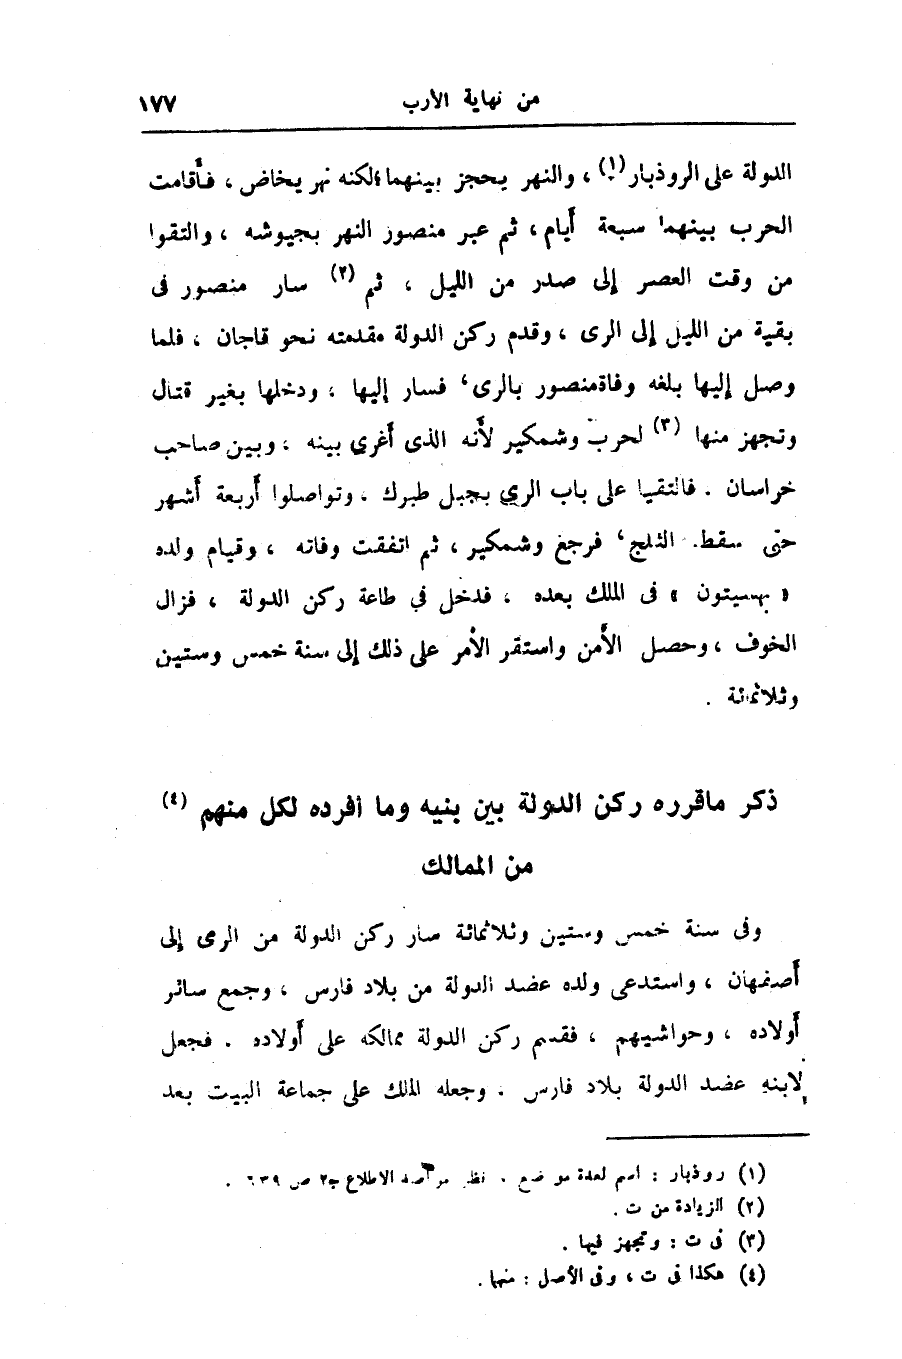 من نهاية الأرب ١٧٧
الدولة على الروذبار (١) ، والنهر يحجز بينهما ؛ لكنه نهر يخاض ، فأقامت
الحرب بينهما سبعة أيام ، ثم عبر منصور النهر بجيوشه ، والتقوا
من وقت العصر إلى صدر من الليل ، ثم (٢) سار منصور فى
بقية من الليل إلى الرى ، وقدم ركن الدولة مقدمته نحو قاجان ، فلما
وصل إليها بلغه وفاة منصور بالرى ، فسار إليها ، ودخلها بغير قتال
وتجهز منها (٣) لحرب وشمكير لأنه الذى أغرى بينه ، وبين صاحب
خراسان . فالتقيا على باب الري بجبل طبرك ، وتواصلوا أربعة أشهر
حتى سقط الثلج ، فرجع وشمكير ، ثم اتفقت وفاته ، وقيام ولده
« بهسيتون » فى الملك بعده ، فدخل في طاعة ركن الدولة ، فزال
الخوف ، وحصل الأمن واستقر الأمر على ذلك إلى سنة خمس وستين
وثلاثمائة .
ذكر ماقرره ركن الدولة بين بنيه وما أفرده لكل منهم (٤)
من الممالك
وفى سنة خمس وستين وثلاثمائة سار ركن الدولة من الرى إلى
أصفهان ، واستدعى ولده عضد الدولة من بلاد فارس ، وجمع سائر
أولاده ، وحواشيهم ، فقسم ركن الدولة ممالكه على أولاده . فجعل
لابنه عضد الدولة بلاد فارس . وجعله الملك على جماعة البيت بعد
(١) روذبار : اسم لعدة مواضع . نظر مراصد الاطلاع ج٢ ص ٦٣٩ .
(٢) الزيادة من ت .
(٣) فى ت : وتجهز فيها .
(٤) هكذا فى ت ، وفى الأصل : منها .